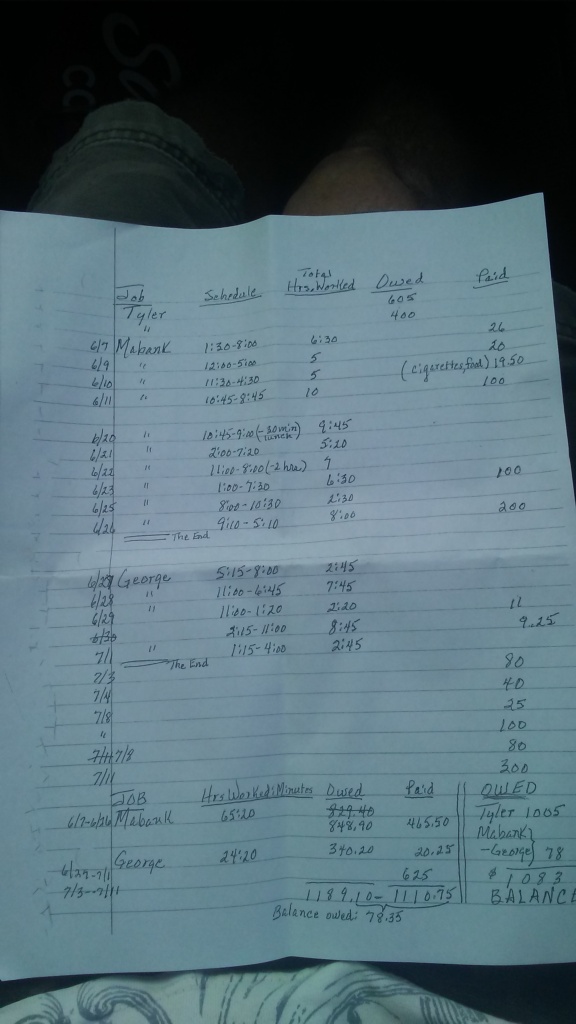 Job Schedule Total Hrs. Worked Owed Paid
Tyler 605
" 400
26
6/7 Mabank 1:30-8:00 6:30 20
6/9 " 12:00-5:00 5 (cigarettes, food) 19.50
6/10 " 11:30-4:30 5 100
6/11 " 10:45-8:45 10
6/20 " 10:45-9:00 (-30 min lunch) 9:45
6/21 " 2:00-7:20 5:20
6/22 " 11:00-8:00 (-2 hrs) 7
6/23 " 1:00-7:30 6:30 100
6/25 " 8:00-10:30 2:30
6/26 " 9:10-5:10 8:00 200
The End
6/27 George 5:15-8:00 2:45
6/28 " 11:00-6:45 7:45
6/29 " 11:00-1:20 2:20 11
6/30 2:15-11:00 8:45 9.25
7/1 " 1:15-4:00 2:45
7/3 The End 80
7/4 40
7/8 25
" 100
7/11 7/8 80
7/11 300
JOB Hrs Worked:Minutes Owed Paid OWED
829.40 Tyler 1005
6/7-6/26 Mabank 65:20 848.90 465.50 Mabank
George 24:20 340.20 20.25 -George 78
6/27-7/1
7/3-7/11 625 $1083
1189.10 - 1110.75 BALANCE
Balance owed: 78.35